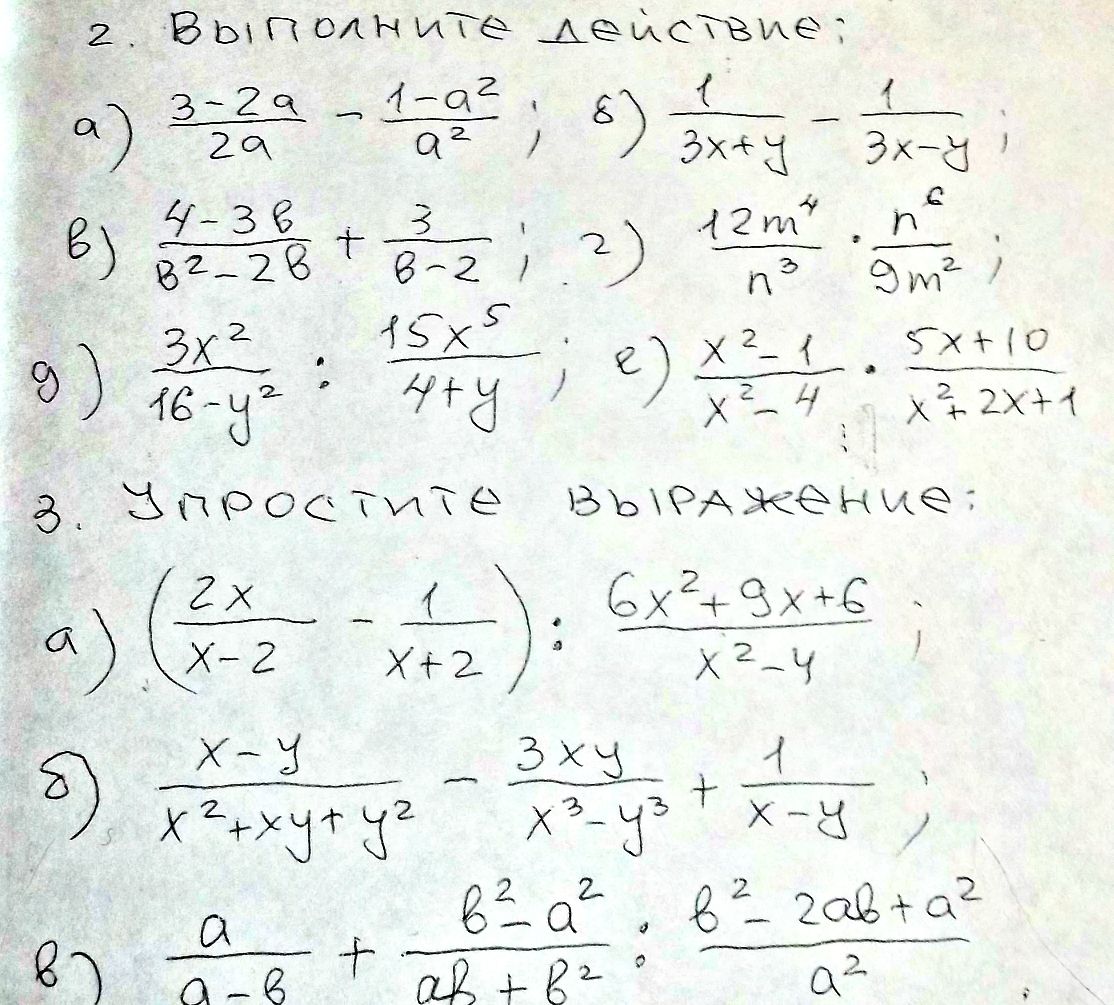 2. Выполните действие:
а) (3-2a)/(2a) - (1-a²)/(a²); б) 1/(3x+y) - 1/(3x-y);
в) (4-3в)/(в²-2в) + 3/(в-2); г) (12m⁴)/(n³) · (n⁶)/(9m²);
д) (3x²)/(16-y²) : (15x⁵)/(4+y); е) (x²-1)/(x²-4) · (5x+10)/(x²+2x+1)
3. Упростите выражение:
а) ((2x)/(x-2) - 1/(x+2)) : (6x²+9x+6)/(x²-4);
б) (x-y)/(x²+xy+y²) - (3xy)/(x³-y³) + 1/(x-y);
в) a/(a-в) + (в²-a²)/(aв+в²) : (в²-2aв+a²)/(a²)